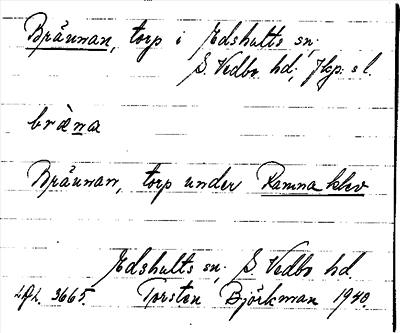 Bråunan, torp i Edshults sn;
S. Vedbo hd; Jkp. s l.
bràna
Bråunan, torp under Ramna klev
Edshults sn; S. Vedbo hd.
3665. Torsten Björkman 1940